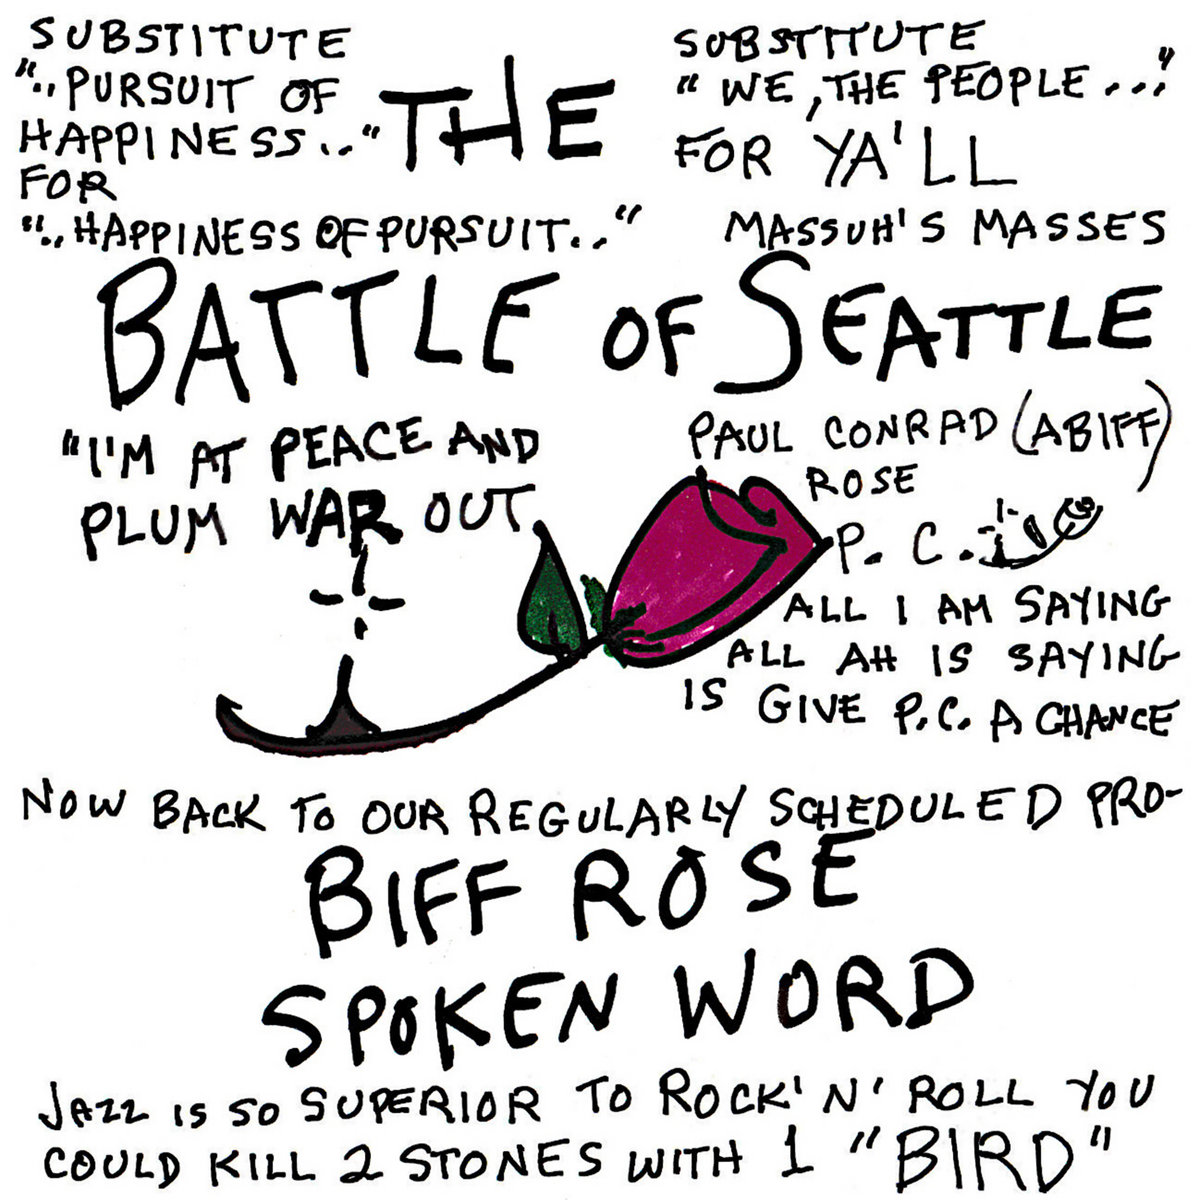 SUBSTITUTE
"..PURSUIT OF
HAPPINESS.."
FOR
"..HAPPINESS OF PURSUIT.."
THE
SUBSTITUTE
"WE, THE PEOPLE..."
FOR YA'LL
MASSUH'S MASSES
BATTLE OF SEATTLE
"I'M AT PEACE AND
PLUM WAR OUT
PAUL CONRAD (ABIFF)
ROSE
P. C.
ALL I AM SAYING
ALL AH IS SAYING
IS GIVE P.C. A CHANCE
NOW BACK TO OUR REGULARLY SCHEDULED PRO-
BIFF ROSE
SPOKEN WORD
JAZZ IS SO SUPERIOR TO ROCK 'N' ROLL YOU
COULD KILL 2 STONES WITH 1 "BIRD"